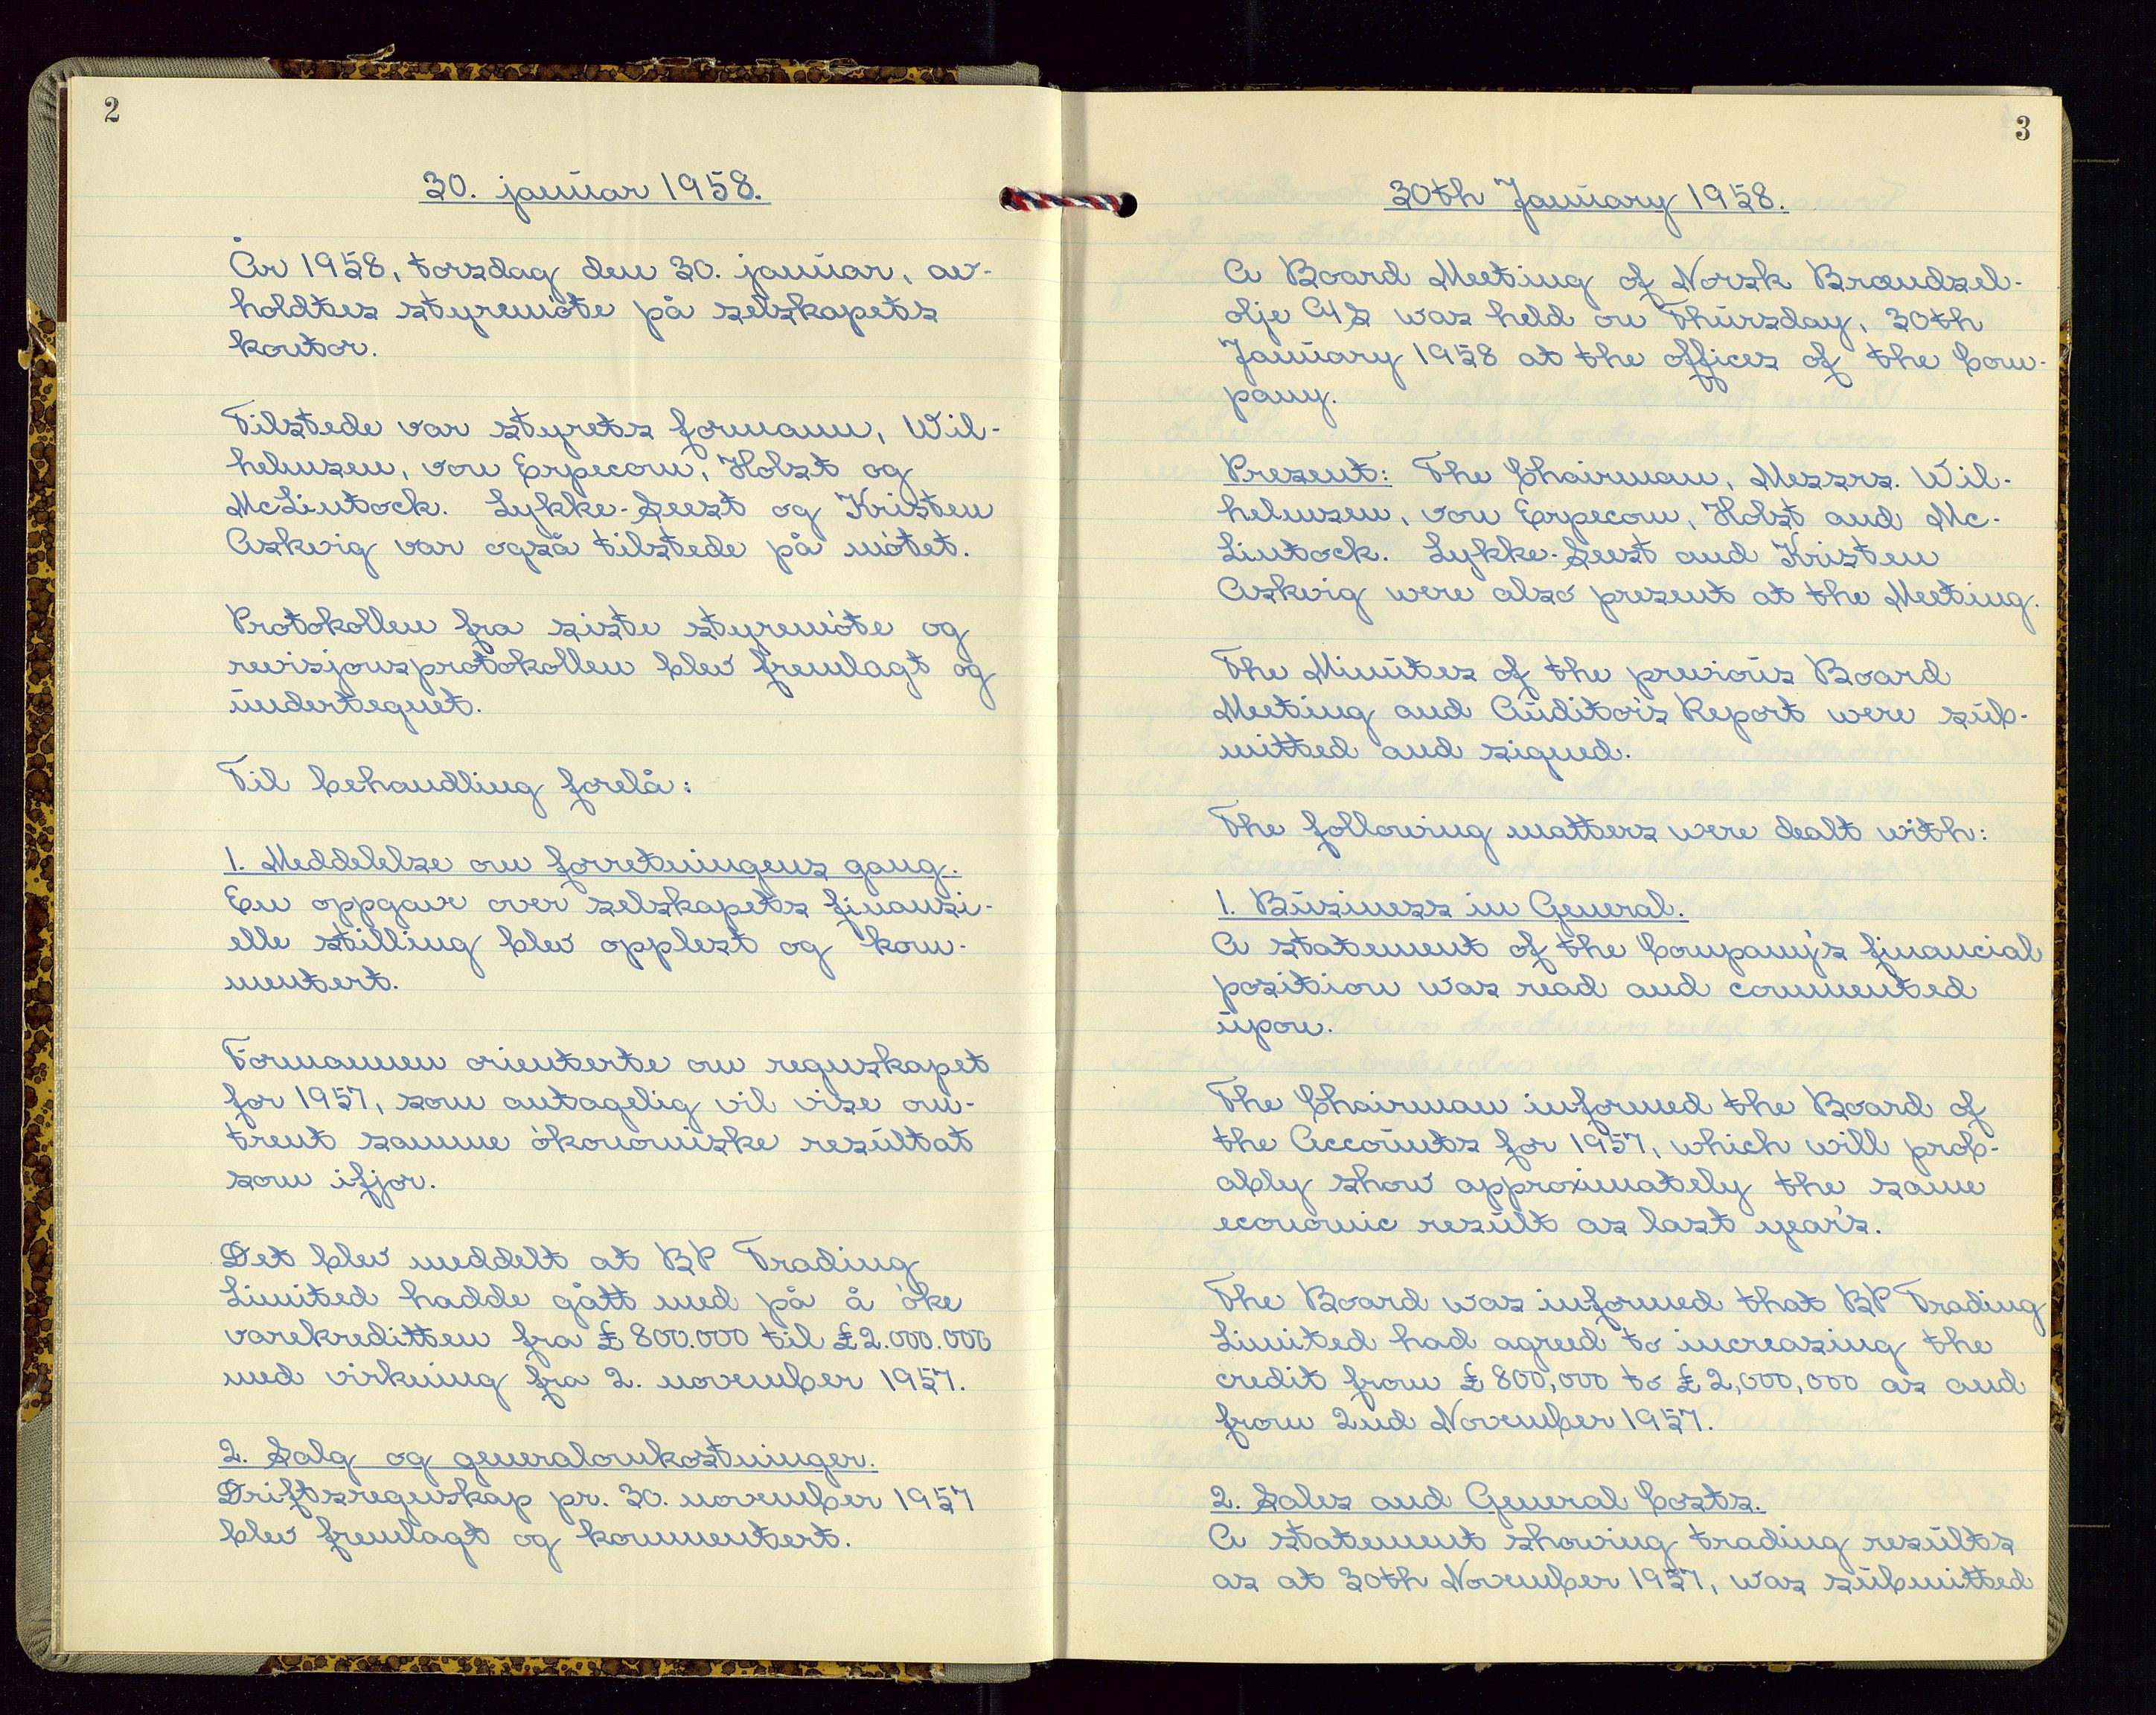 2
30. januar 1958.
År 1958, torsdag den 30. januar, av-
holdtes styremöte på selskapets
kontor.
Tilstede var styrets formann, Wil-
helmsen, von Erpecom, Holst og
McLintock. Lykke-Seest og Kristen
Askvig var også tilstede på mötet.
Protokollen fra siste styremöte og
revisjonsprotokollen blev fremlagt og
undertegnet.
Til behandling forelå:
1. Meddelelse om forretningens gang.
En oppgave over selskapets finansi-
elle stilling blev opplest og kom-
mentert.
Formannen orienterte om regnskapet
for 1957, som antagelig vil vise om-
trent samme ökonomiske resultat
som ifjor.
Det blev meddelt at BP Trading
Limited hadde gått med på å öke
varekreditten fra £ 800.000 til £ 2.000.000
med virkning fra 2. november 1957.
2. Salg og generalomkostninger.
Driftsregnskap pr. 30. november 1957
blev fremlagt og kommentert.
3
30th January 1958.
A Board Meeting of Norsk Brændsel-
olje A/S was held on Thursday, 30th
January 1958 at the offices of the Com-
pany.
Present: The Chairman, Messrs. Wil-
helmsen, von Erpecom, Holst and Mc-
Lintock. Lykke-Seest and Kristen
Askvig were also present at the Meeting.
The Minutes of the previous Board
Meeting and Auditor's Report were sub-
mitted and signed.
The following matters were dealt with:
1. Business in General.
A statement of the Company's financial
position was read and commented
upon.
The Chairman informed the Board of
the Accounts for 1957, which will prob-
ably show approximately the same
economic result as last year's.
The Board was informed that BP Trading
Limited had agreed to increasing the
credit from £ 800,000 to £ 2,000,000 as and
from 2nd November 1957.
2. Sales and General Costs.
A statement showing trading results
as at 30th November 1957, was submitted